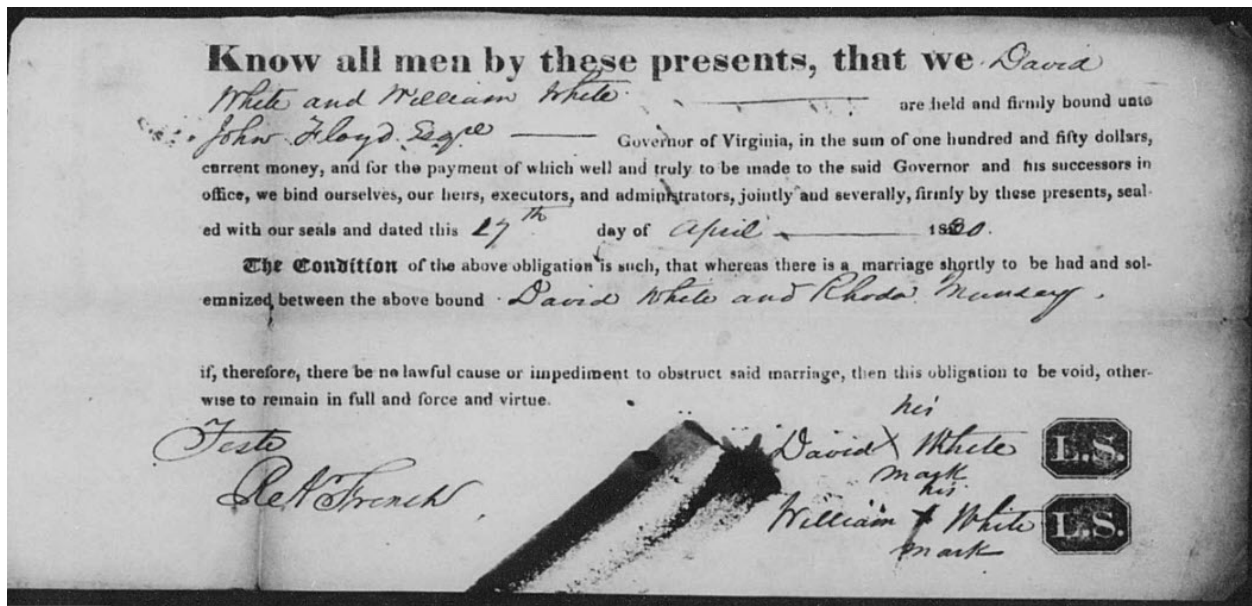 Know all men by these presents, that we David
White and William White are held and firmly bound unto
John Floyd Esqre Governor of Virginia, in the sum of one hundred and fifty dollars,
current money, and for the payment of which well and truly to be made to the said Governor and his successors in
office, we bind ourselves, our heirs, executors, and administrators, jointly and severally, firmly by these presents, seal-
ed with our seals and dated this 27th day of April 1830.
The Condition of the above obligation is such, that whereas there is a marriage shortly to be had and sol-
emnized between the above bound David White and Rhoda Munsey.
if, therefore, there be no lawful cause or impediment to obstruct said marriage, then this obligation to be void, other-
wise to remain in full and force and virtue.
his
Teste David X White L.S.
mark
French
his
William X White L.S.
mark